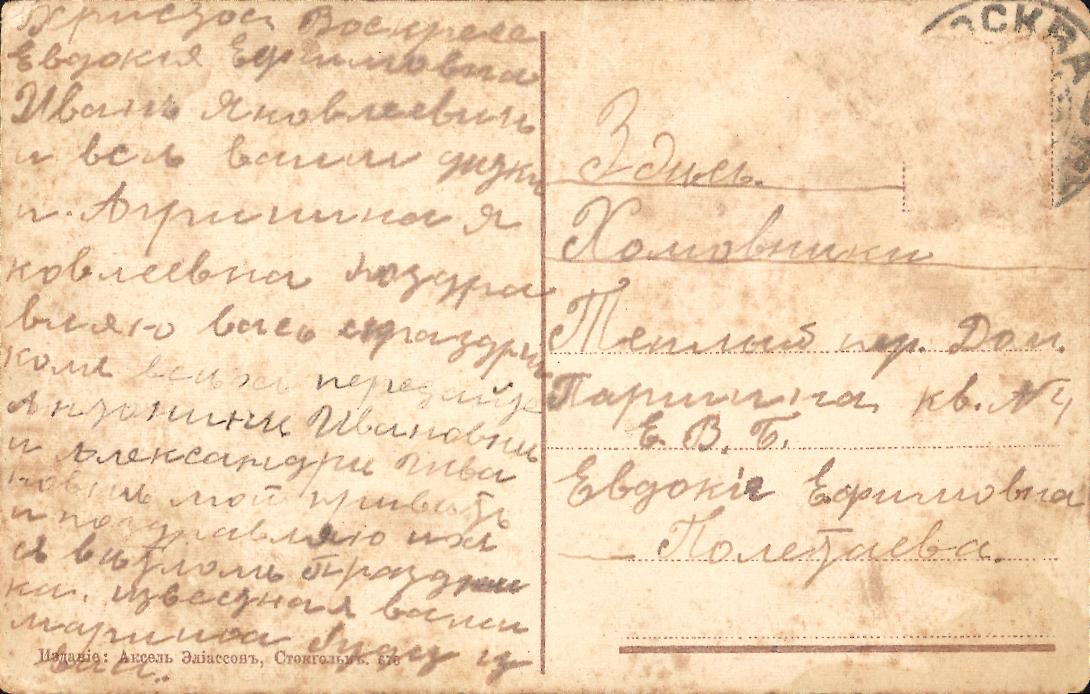 Христос Воскресе
Евдокия Ефимовна
Иванъ Яковлеевичь
и всѣ ваши
и. Агрипина я
ковлеевна поздра
вляю васъ спраздни
комъ передайте
Антонини Ивановны
и Александри Ива
мой приветъ
и поздравляю ихъ
праздни
ка. известная вами
Издание: Аксель Эліассонъ, Стокгольмъ. 676
МОСКВА
Здесь.
Хомовники
Теплый пер. Дом.
Паршина кв. N 4
Е. В. Б.
Евдокіе Ефимовна
Полетаева.